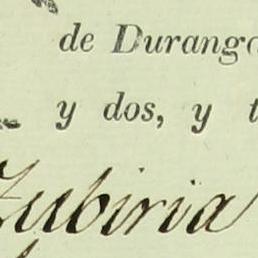 de Durango
y dos, y
Zubiria